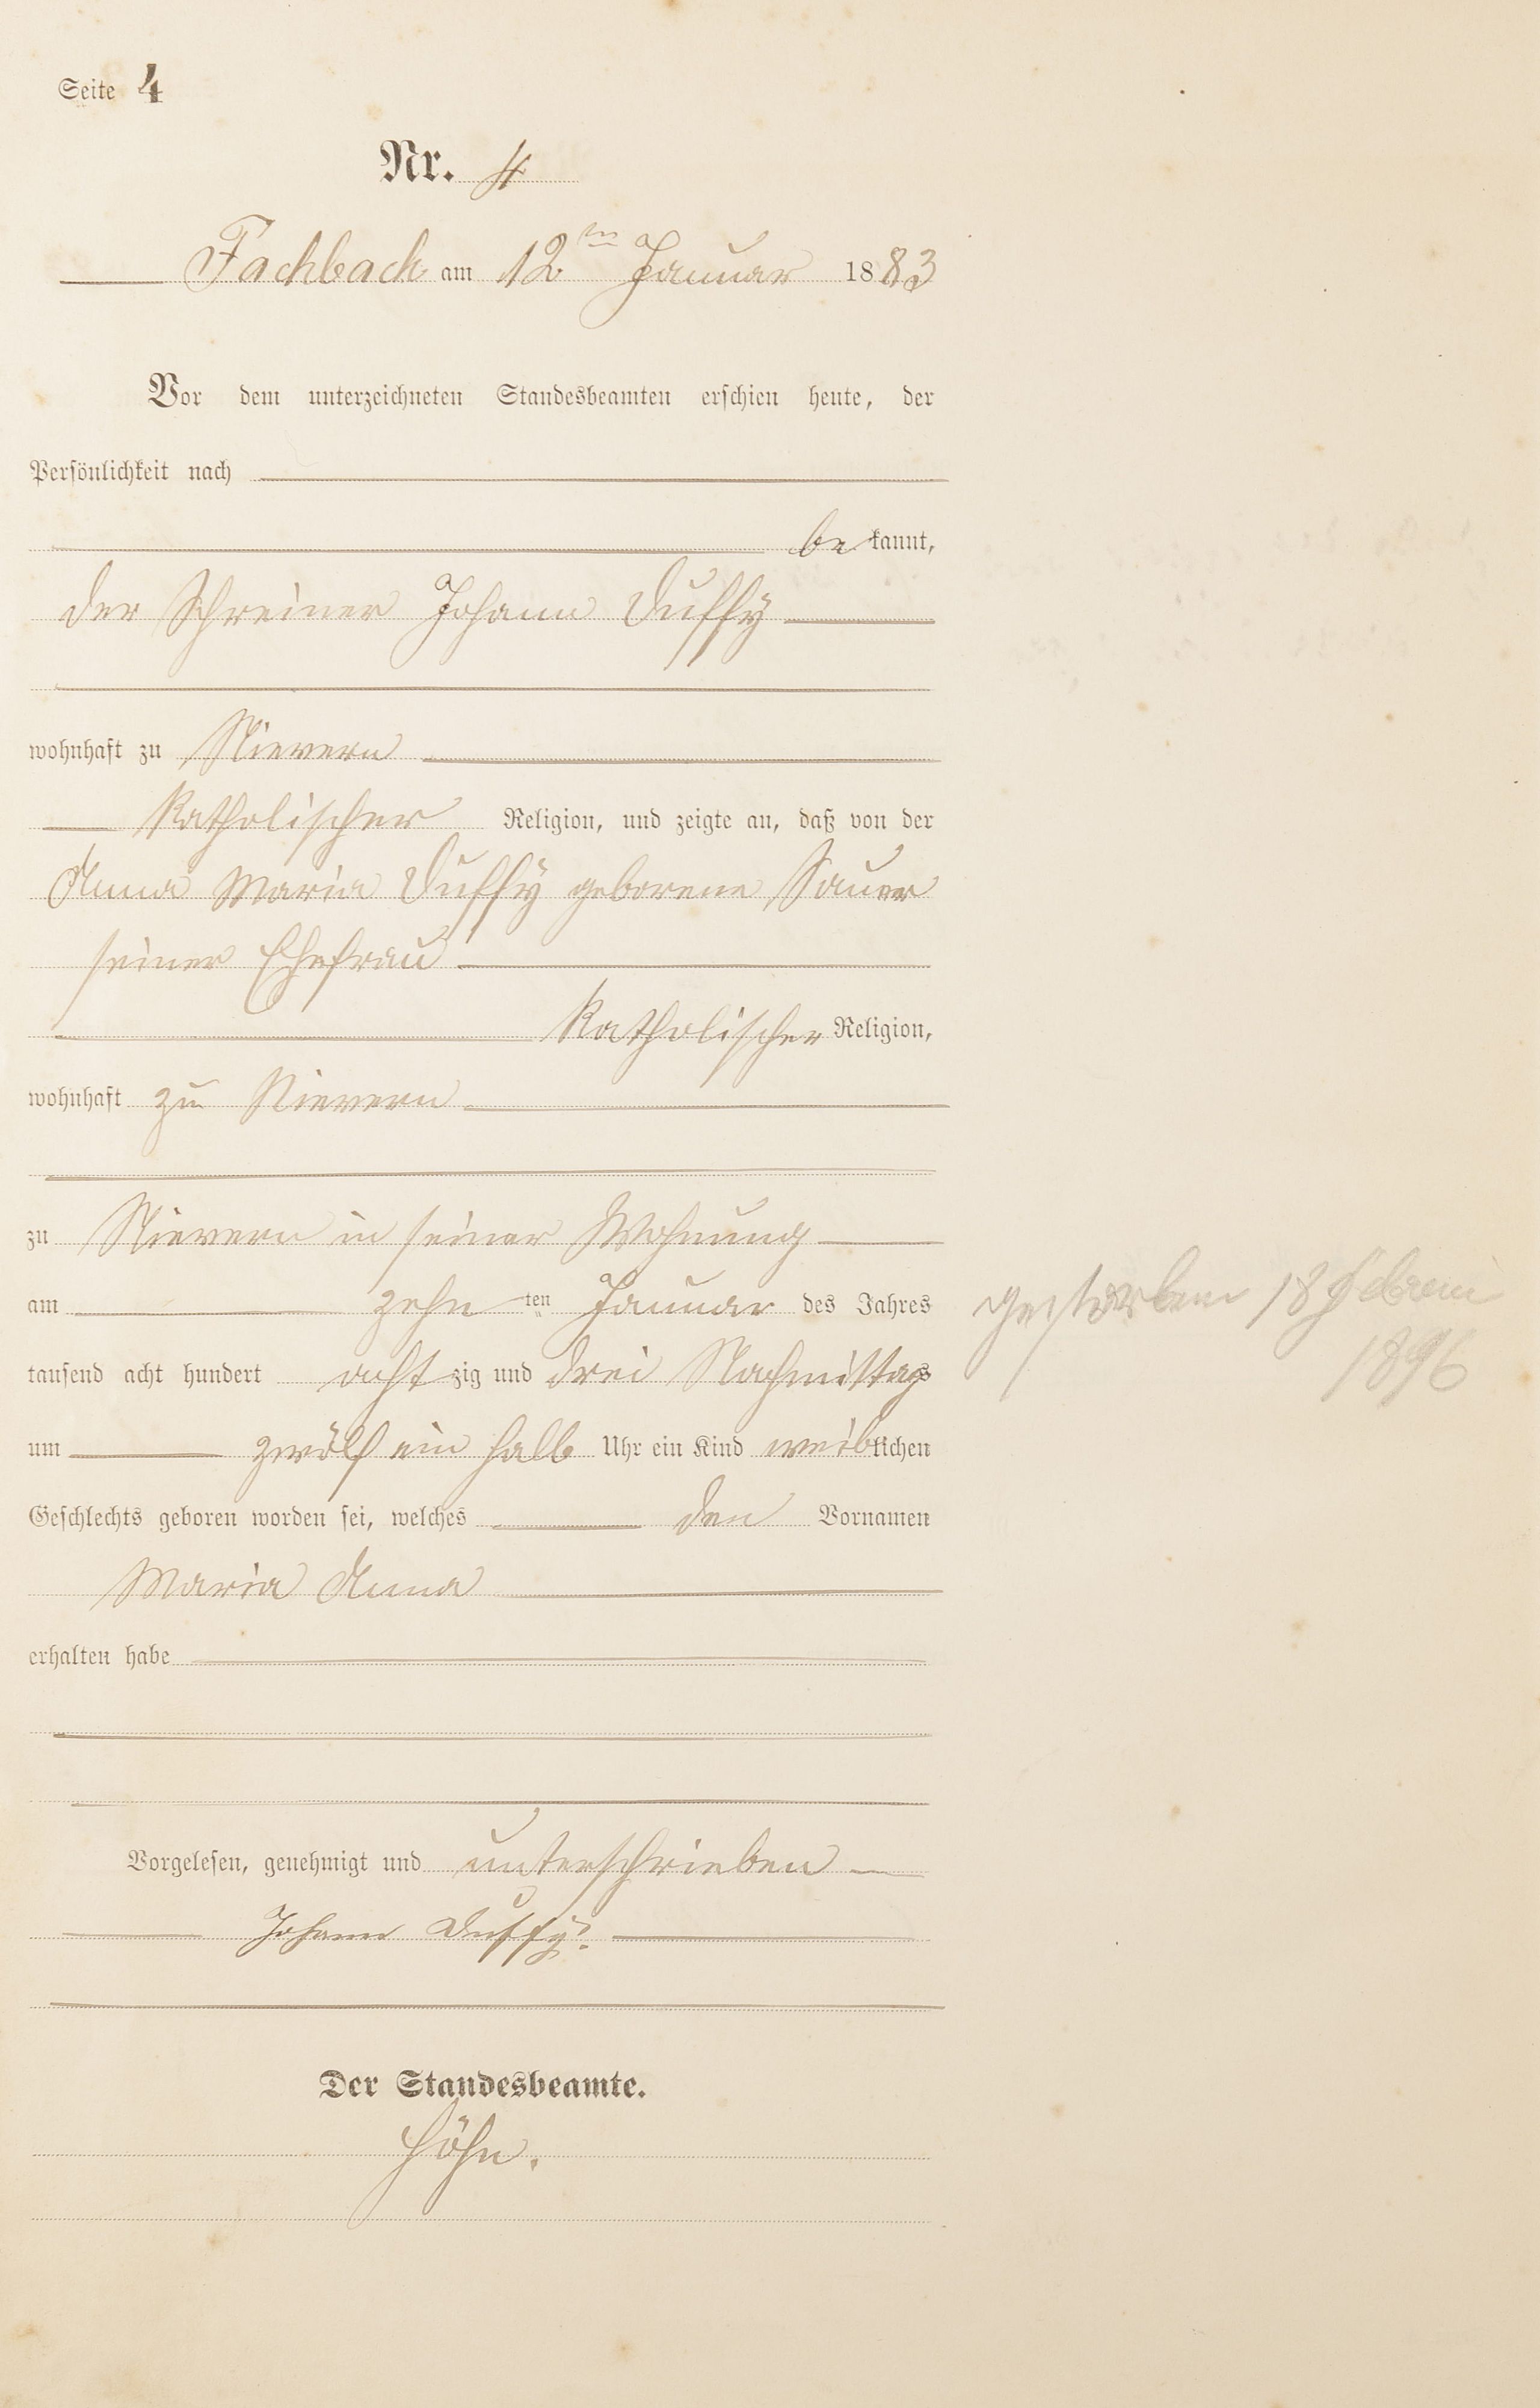 Seite 4
Nr. 4
Fachbach am 12ten Januar 1883
Vor dem unterzeichneten Standesbeamten erschien heute, der
Persönlichkeit nach
bekannt,
der Schreiner Johann Duffy
wohnhaft zu Nievern
Katholischer Religion, und zeigte an, daß von der
Anna Maria Duffy geborene Sauer
seiner Ehefrau
Katholischer Religion,
wohnhaft zu Nievern
zu Nievern in seiner Wohnung
am zehnten Januar des Jahres
gestorben 18 Februar
tausend acht hundert achtzig und drei Nachmittags
1896
um zwölf ein halb Uhr ein Kind weiblichen
Geschlechts geboren worden sei, welches den Vornamen
Maria Anna
erhalten habe
Vorgelesen, genehmigt und unterschrieben
Johann Duffy.
Der Standesbeamte.
Höhn.